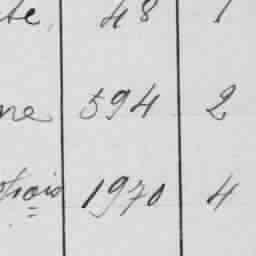 te, 48 1
ne 594 2
1970 4